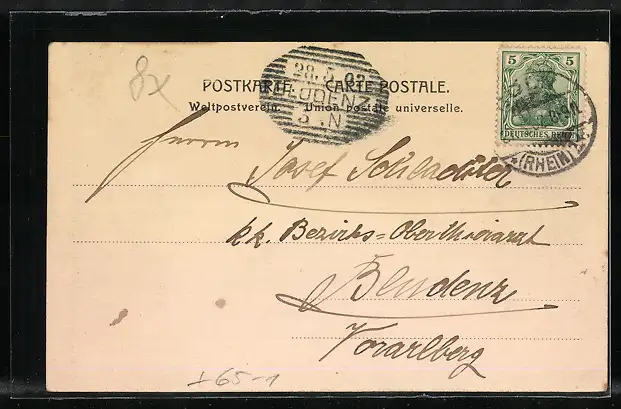 8x
POSTKARTE. — CARTE POSTALE.
Weltpostverein. — Union postale universelle.
28.5.02
BLUDENZ
5 . N
5 5
DEUTSCHES REICH
(RHEIN)
Herrn
Josef
k.k. Bezirks=Oberthierarzt
Bludenz
Vorarlberg